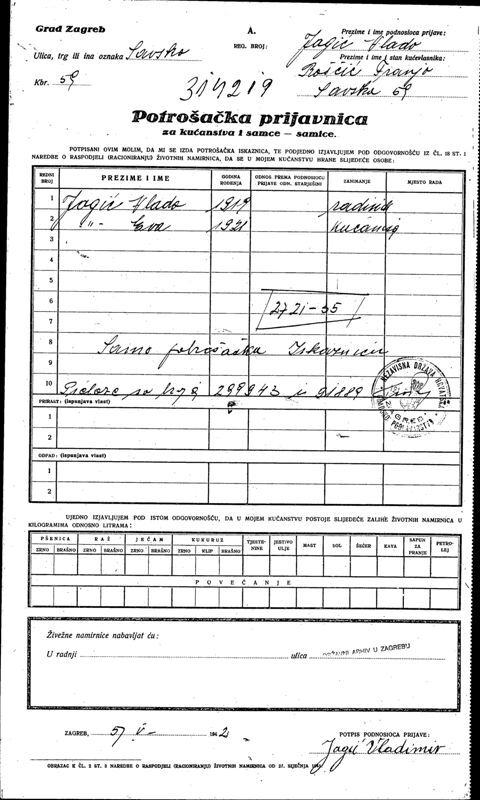 Grad Zagreb
A.
Prezime i ime podnosioca prijave:
Ulica, trg ili ina oznaka Savska
REG. BROJ:
Jagić Vlado
Prezime i ime i stan kućevlasnika:
Kbr. 59
Franjo
Savska 59
Potrošačka prijavnica
za kućanstva i samce — samice.
POTPISANI OVIM MOLIM, DA MI SE IZDA POTROŠAČKA ISKAZNICA, TE PODJEDNO IZJAVLJUJEM POD ODGOVORNOŠĆU IZ ČL. 18 ST. 1
NAREDBE O RASPODJELI (RACIONIRANJU) ŽIVOTNIH NAMIRNICA, DA SE U MOJEM KUĆANSTVU HRANE SLIJEDEĆE OSOBE:
REDNI BROJ
PREZIME I IME
GODINA ROĐENJA
ODNOS PREMA PODNOSIOCU PRIJAVE ODN. STARJEŠINI
ZANIMANJE
MJESTO RADA
1 Jagić Vlado 1919 radnik
2 -"- Eva 1921
3
4
5
6
2721-35
7
8 Samo potrošačku Iskaznicu
9
10
PRIRAST: (ispunjava vlast)
1
2
OTPAD: (ispunjava vlast)
1
2
NEZAVISNA DRŽAVA HRVATSKA
ZAGREB
UJEDNO IZJAVLJUJEM POD ISTOM ODGOVORNOŠĆU, DA U MOJEM KUĆANSTVU POSTOJE SLIJEDEĆE ZALIHE ŽIVOTNIH NAMIRNICA U
KILOGRAMIMA ODNOSNO LITRAMA:
PŠENICA RAŽ JEČAM KUKURUZ TJESTENINE JESTIVO ULJE MAST SOL ŠEĆER KAVA SAPUN ZA PRANJE PETROLEJ
ZRNO BRAŠNO ZRNO BRAŠNO ZRNO BRAŠNO ZRNO KLIP BRAŠNO
POVEĆANJE
Živežne namirnice nabavljat ću:
U radnji
ulica
DRŽAVNI ARHIV U ZAGREBU
ZAGREB, V 1942
POTPIS PODNOSIOCA PRIJAVE:
Jagić Vladimir
OBRAZAC K ČL. 2 ST. 3 NAREDBE O RASPODJELI (RACIONIRANJU) ŽIVOTNIH NAMIRNICA OD 21. SIJEČNJA